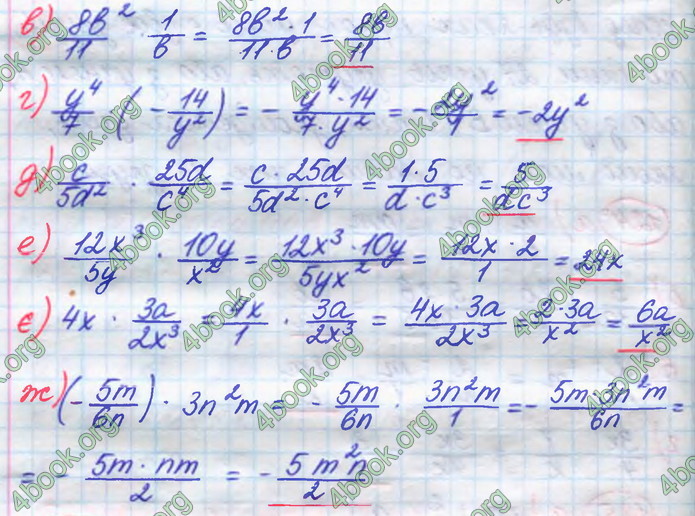 в) 8b²/11 · 1/b = 8b²·1/11·b = 8b/11
г) y⁴/7 · (-14/y²) = - y⁴·14/7·y² = - 2y²/1 = -2y²
д) c/5d² · 25d/c⁴ = c·25d/5d²·c⁴ = 1·5/d·c³ = 5/dc³
е) 12x³/5y · 10y/x² = 12x³·10y/5yx² = 12x·2/1 = 24x
є) 4x · 3a/2x³ = 4x/1 · 3a/2x³ = 4x·3a/2x³ = 2·3a/x² = 6a/x²
ж) (-5m/6n) · 3n²m = - 5m/6n · 3n²m/1 = - 5m·3n²m/6n =
= - 5m·nm/2 = - 5m²n/2
4book.org